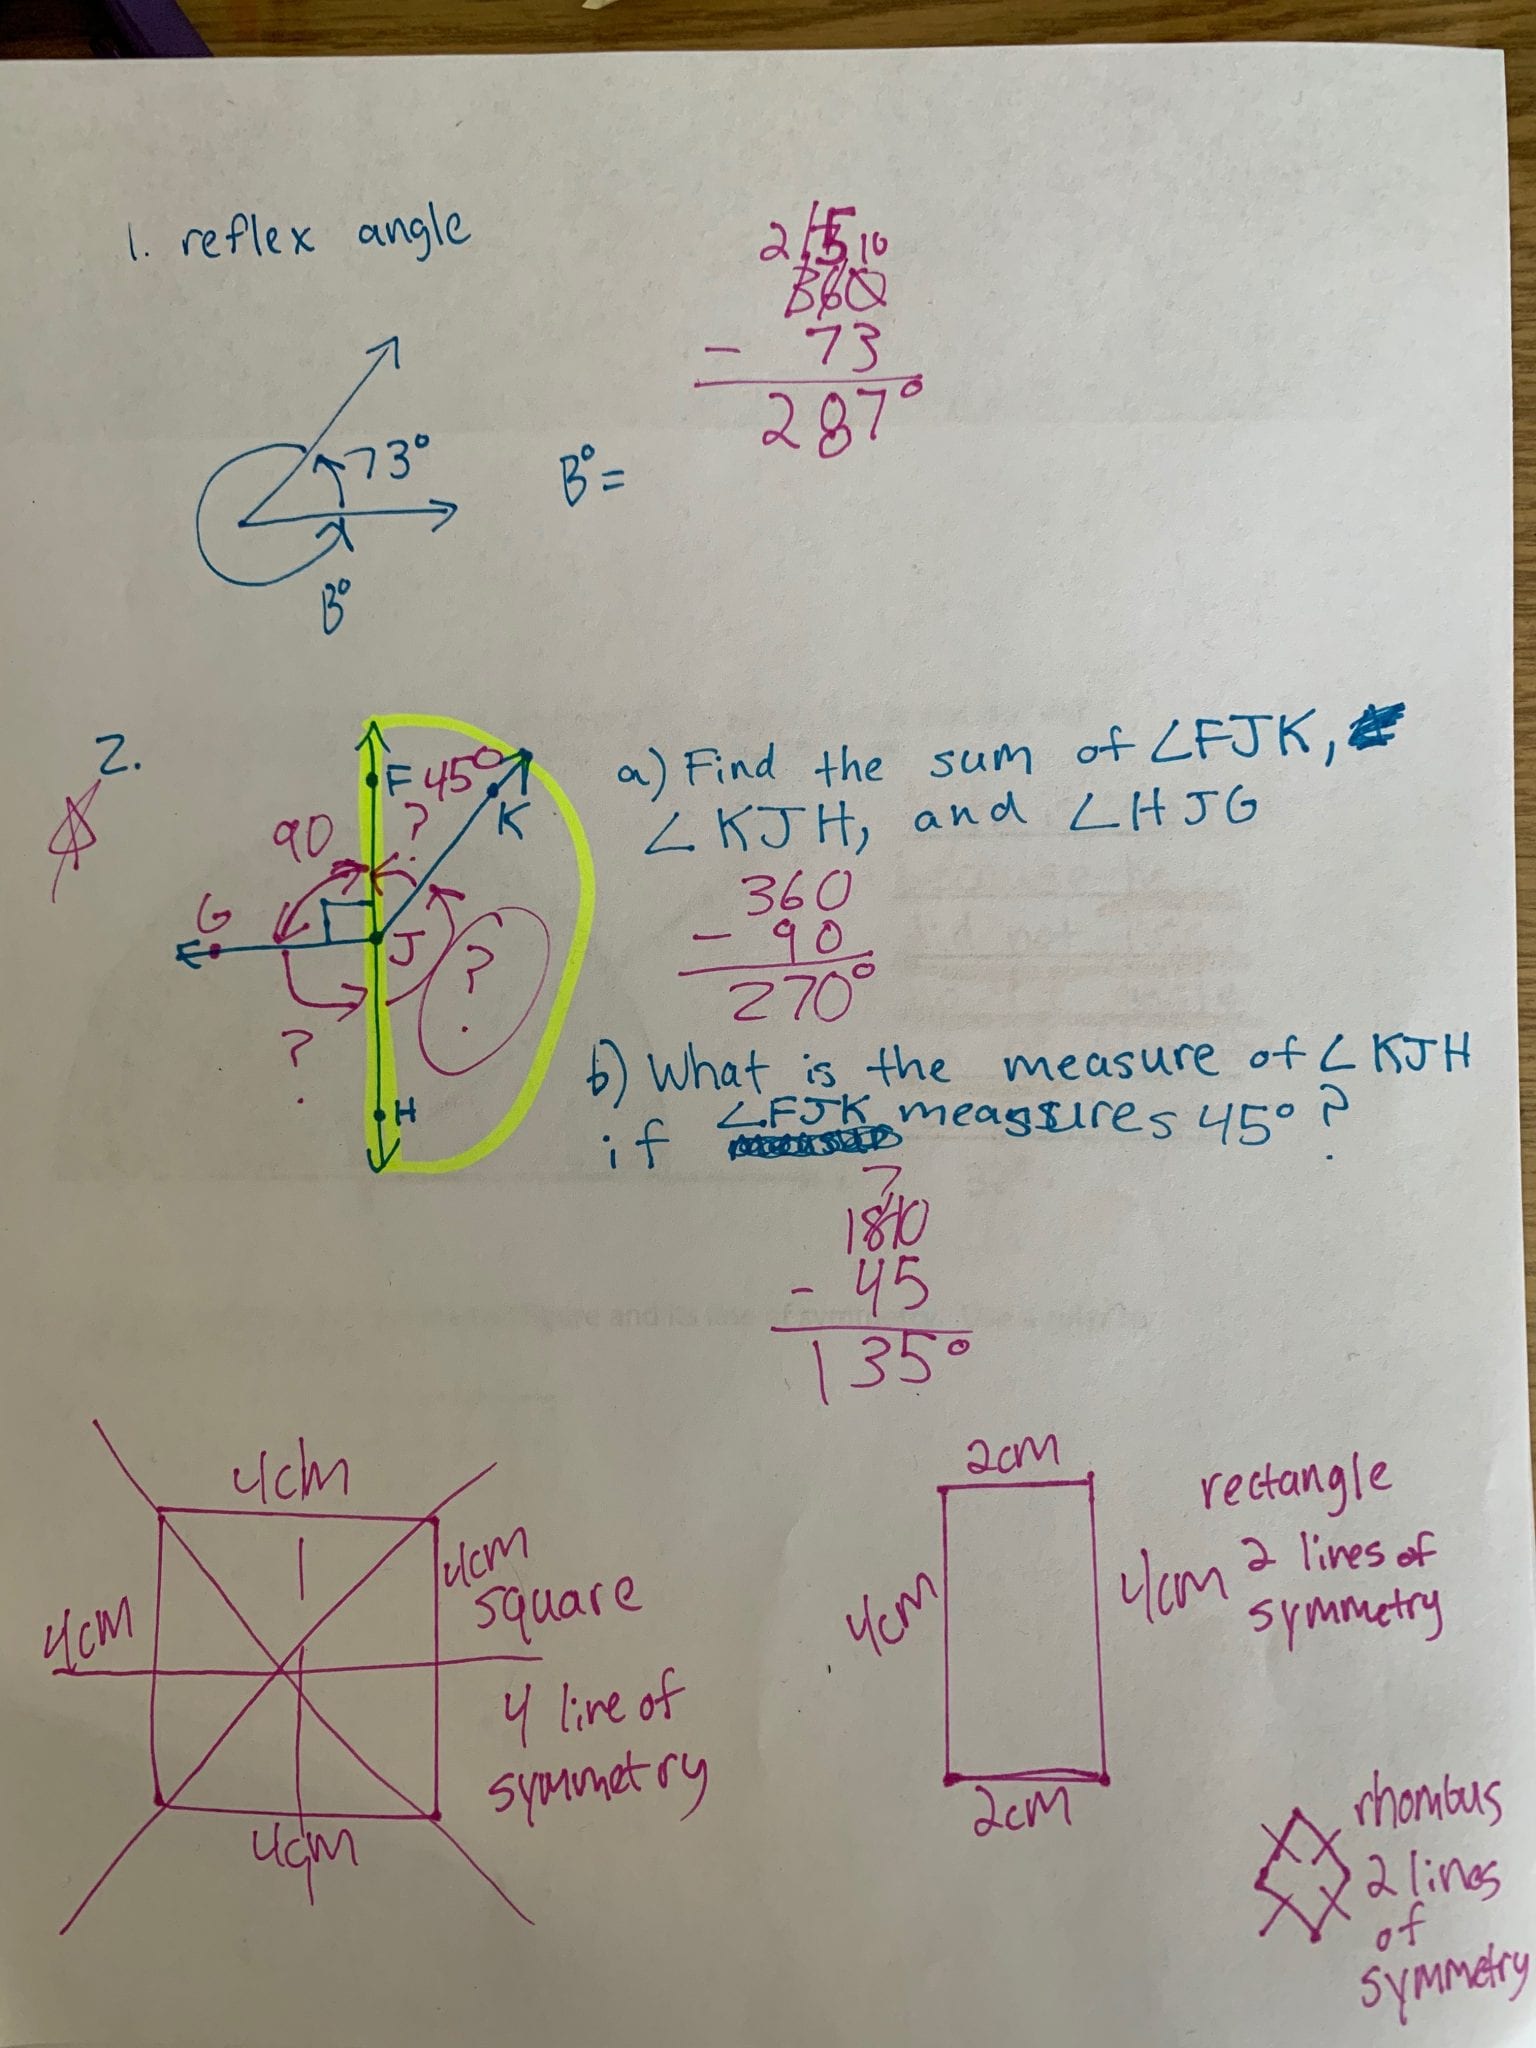 1. reflex angle
2 15 10
360
- 73
287°
73°
B° =
B°
2.
F 45°
?
K
90
G
J
?
?
H
a) Find the sum of ∠FJK,
∠KJH, and ∠HJG
360
- 90
270°
b) What is the measure of ∠KJH
if ∠FJK measures 45°?
7
180
- 45
135°
4cm
4cm
square
4cm
4 line of
symmetry
4cm
2cm
rectangle
4cm
4cm
2 lines of
symmetry
2cm
rhombus
2 lines
of
symmetry